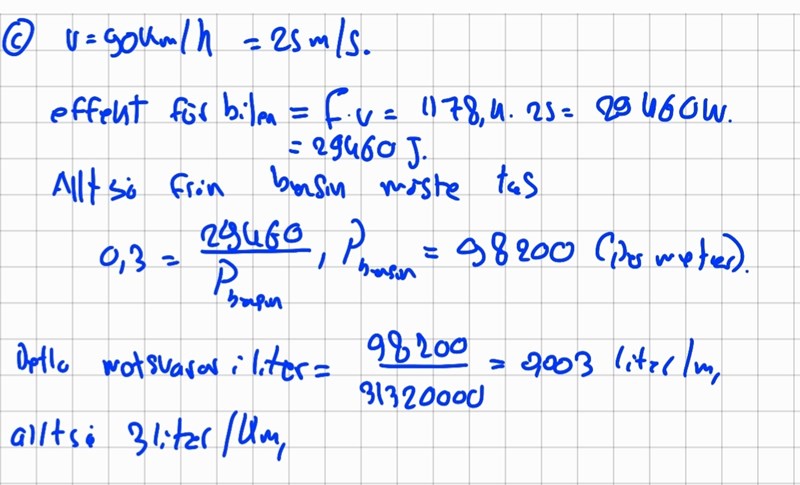 Ⓒ v = 90 km/h = 25 m/s.
effekt för bilen = F·v = 1178,4 · 25 = 29 460 W.
= 29460 J.
Alltså från bensin måste tas
0,3 = 29460 / P_bensin , P_bensin = 98200 (per meter).
Detta motsvarar i liter = 98200 / 31320000 = 0,003 liter/m,
alltså 3 liter/km,